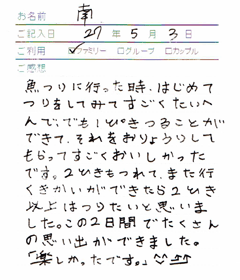 お名前 南
ご記入日 27年5月3日
ご利用 ☑ファミリー □グループ □カップル
ご感想
魚つりに行った時、はじめて
つりをしてみてすごくたいへ
んで、でも1ぴきつることが
できて、それをおりょうりして
もらってすごくおいしかった
です。2ひきもつれて、また行
くきかいができたら2ひき
以上はつりたいと思いま
した。この2日間でたくさん
の思い出ができました。
「楽しかったです。」